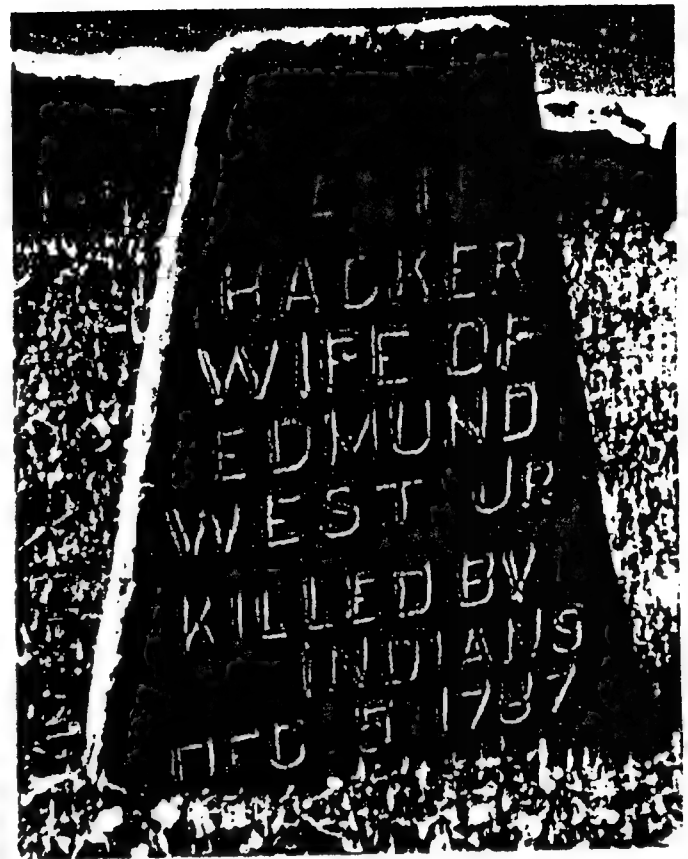 HACKER
WIFE OF
EDMUND
WEST JR
KILLED BY
INDIANS
5 1787